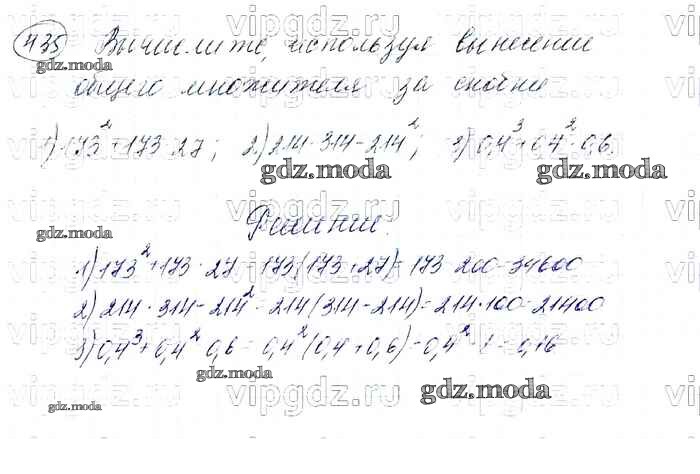 435 Вычислите, используя вынесение
общего множителя за скобки
1) 173² + 173 · 27; 2) 214 · 314 – 214²; 3) 0,4³ + 0,4² · 0,6.
Решение.
1) 173² + 173 · 27 = 173(173 + 27) = 173 · 200 = 34600
2) 214 · 314 – 214² = 214(314 – 214) = 214 · 100 = 21400
3) 0,4³ + 0,4² · 0,6 = 0,4²(0,4 + 0,6) = 0,4² · 1 = 0,16
vipgdz.ru
gdz.moda